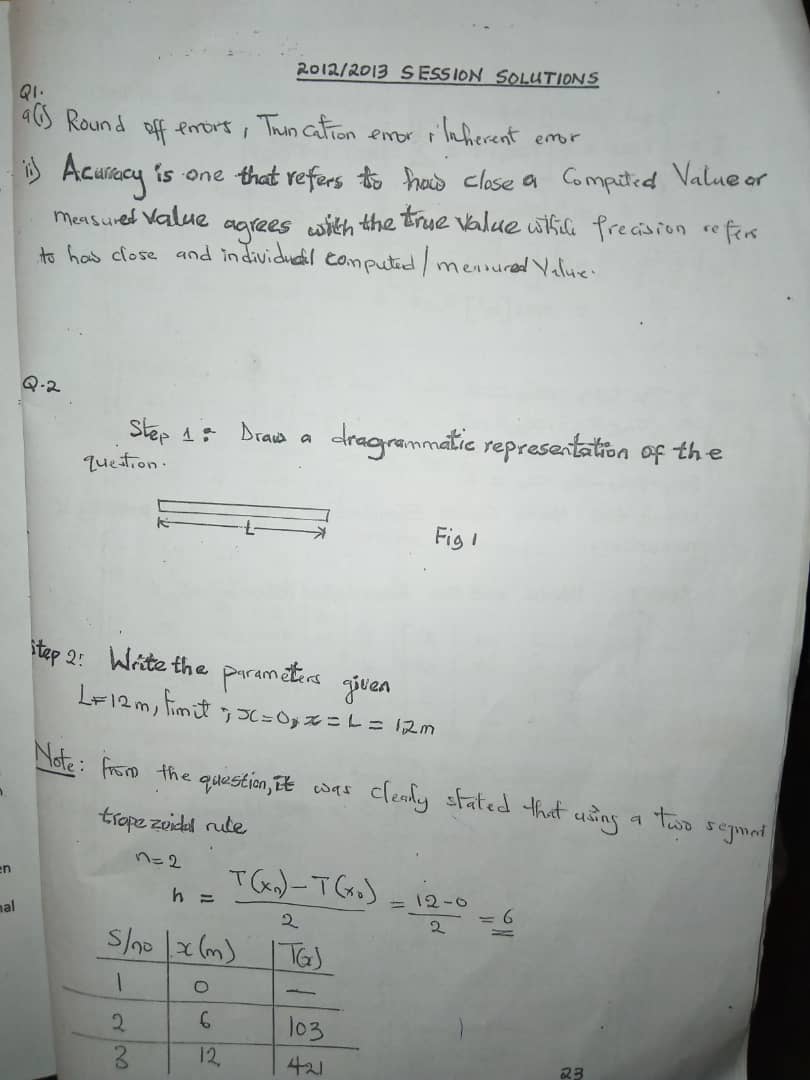 2012/2013 SESSION SOLUTIONS
Q1.
a(i) Round off errors, Truncation error, Inherent error
ii) Acurracy is one that refers to how close a Computed Value or
measured Value agrees with the true Value while precision refers
to how close and individual computed / measured Value.
Q.2
Step 1: Draw a dragrammatic representation of the
question.
L
Fig 1
Step 2: Write the parameters given
L=12m, limit ; x=0, x=L=12m
Note: from the question, it was clearly stated that using a two segment
trapezoidal rule
n=2
h = T(xn)-T(x0) / 2 = 12-0 / 2 = 6
S/no | x(m) | T(x)
1 | 0 | —
2 | 6 | 103
3 | 12 | 421
23
en
nal